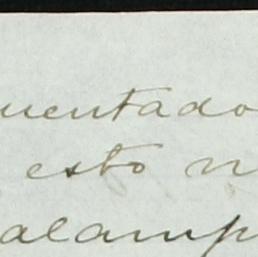 uentado
esto n
alamp